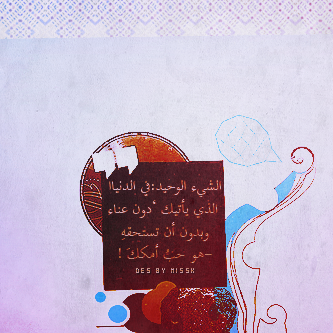 الشيء الوحيد:في الدنياا
الذي يأتيك ‘دون عناء
وبدون أن تستحقهِ
-هو حبّ أمككَ !
DES BY MISSK